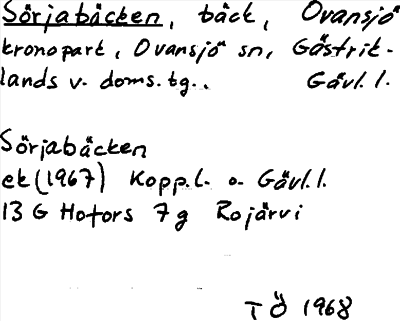 Sörjabäcken, bäck, Ovansjö
kronopark, Ovansjö sn, Gästrik-
lands v. doms.tg.. Gävl.l.
Sörjabäcken
ek (1967) Kopp.l. o. Gävl.l.
13 G Hofors 7 g Rojärvi
TÖ 1968